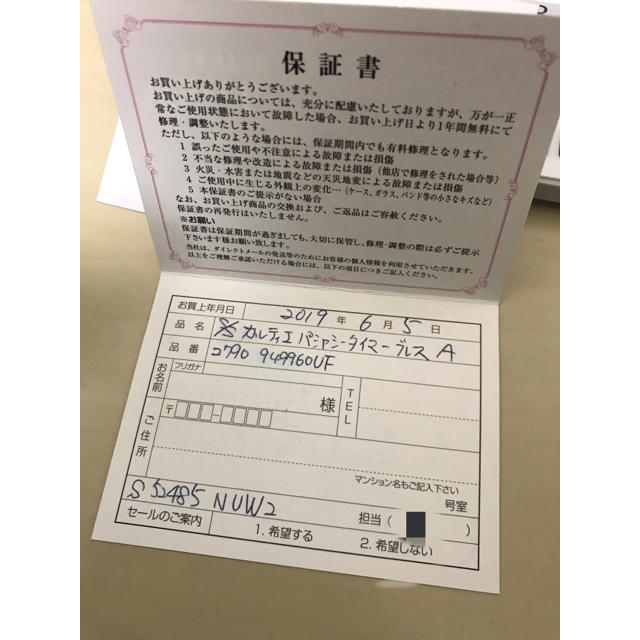 保証書
お買い上げありがとうございます。
お買い上げの商品については、充分に配慮いたしておりますが、万が一正
常なご使用状態において故障した場合、お買い上げ日より1年間無料にて
修理・調整いたします。
ただし、以下のような場合には、保証期間内でも有料修理となります。
1 誤ったご使用や不注意による故障または損傷
2 不当な修理や改造による故障または損傷(他店で修理をされた場合等)
3 火災・水害または地震などの天災地変による故障または損傷
4 ご使用中に生じる外観上の変化…(ケース、ガラス、バンド等の小さなキズなど)
5 本保証書のご提示がない場合
なお、お買い上げ商品の交換および、ご返品はご容赦ください。
保証書の再発行はいたしません。
※お願い
保証書は保証期間が過ぎましても、大切に保管し、修理・調整の際は必ずご提示
下さいます様お願い致します。
当社は、ダイレクトメールの発送等のためにお客様の個人情報を利用させていただきます。
以上をご理解ご承諾いただける場合には、以下の項目につきご記入ください。
お買上年月日 2019 年 6 月 5 日
品名 カルティエ パシャシータイマー ブレス A
品番 2790 949960UF
お名前 フリガナ 様 TEL
ご住所 〒
マンション名もご記入下さい
号室
S 52485 NUW2 担当( )
セールのご案内 1. 希望する 2. 希望しない